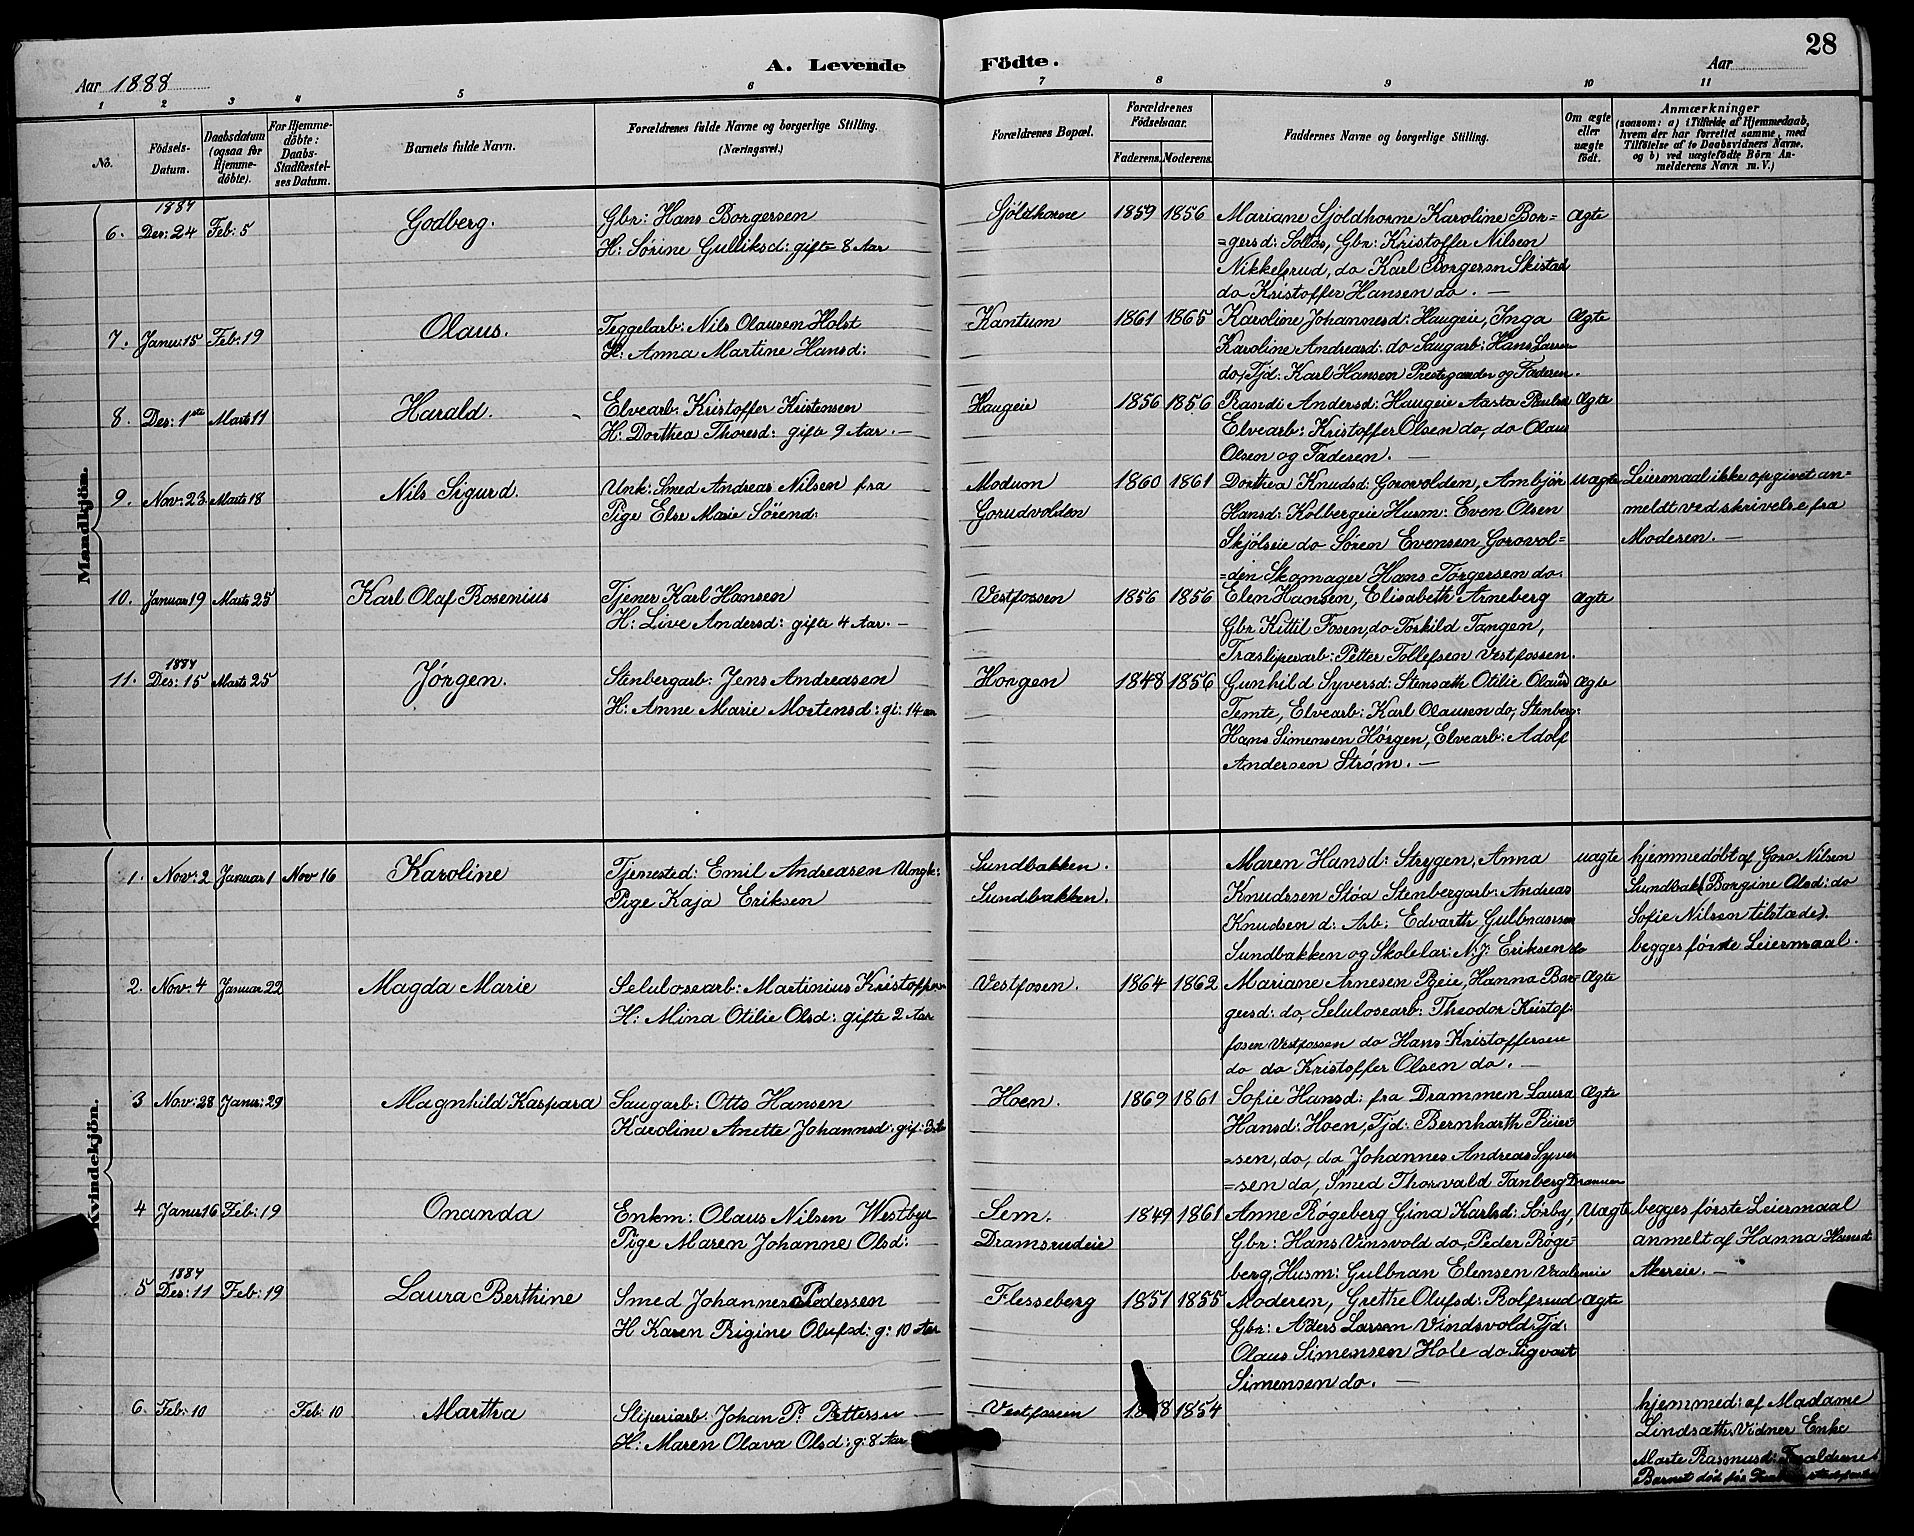 28
A. Levende Födte.
Aar 1888
Aar
1 2 3 4 5 6 7 8 9 10 11
No.
Födsels-Datum.
Daabsdatum (ogsaa for Hjemmedöbte).
For Hjemmedöbte: Daabs-Stadfæstelses Datum.
Barnets fulde Navn.
Forældrenes fulde Navne og borgerlige Stilling. (Næringsvei.)
Forældrenes Bopæl.
Forældrenes Födselsaar.
Faderens. Moderens.
Faddernes Navne og borgerlige Stilling.
Om ægte eller uægte födt.
Anmærkninger
(saasom: a) i Tilfælde af Hjemmedaab, hvem der har forrettet samme, med Tilföielse af to Daabsvidners Navne. og b) ved uægtefödte Börn Anmelderens Navn m. V.)
Mandkjön.
1887
6. Des: 24 Feb: 5 Godberg. Gbr: Hans Borgersen Sjöldhorne 1859 1856 Mariane Sjoldhorne Karoline Bor= Ægte
H: Sørine Gulliksd: gifte 8 Aar =gersd: Sollos, Gbr: Kristoffer Nilsen
Nikkelsrud, do Karl Borgersn Skistad
do Kristoffer Hansen do. —
7. Janu: 15 Feb: 19 Olaus. Teggelarb: Nils Olausen Holst Kantum 1861 1865 Karoline Johannesd: Haugeie, Inga Ægte
H: Anna Martine Hansd: Karoline Andreasd: do Saugarb: Hans Larsen
do, Tjd: Karl Hansen Prestegaarden og Faderen.
8. Des: 1ste Marts 11 Harald. Elvearb. Kristoffer Kristensen Haugeie 1856 1856 Randi Andersd: Haugeie Aasta Paulsn Ægte
H: Dorthea Thoresd: gifte 9 Aar. — Elvearb: Kristoffer Olsen do, do Olaus
Olsen og Faderen. —
9. Nov: 23 Marts 18 Nils Sigurd. Unk: Smed Andreas Nilsen fra Modum 1860 1861 Dorthea Knudsd: Gorovolden, Ambjör Uægte Leiermaal ikke opgivet an=
Pige Else Marie Sørend: Gorudvolden Hansd: Kolbergeie Husm: Even Olsen meldt ved skrivelse fra
Skjölseie do Sören Evensen Gorovol= Moderen. —
=den Skomager Hans Torgersen do.
10. Januar 19 Marts 25 Karl Olaf Rosenius Tjener Karl Hansen Vestfossen 1856 1856 Elen Hansen, Elisabeth Arneberg Ægte
H: Live Andersd: gifte 4 Aar. — Gbr Kittil Fosen, do Torkild Tangen,
Træsliperarb: Petter Tollefsen Vestfossen.
1887
11. Des: 15 Marts 25 Jørgen. Stenbergarb: Jens Andreasen Horgen 1848 1856 Gunhild Syversd: Stensath Otilie Olausd Ægte
H: Anne Marie Mortensd: gi: 14 aar Temte, Elvearb: Karl Olausen do, Stenberg:
Hans Simensen Horgen, Elvearb: Adolf
Andersen Strøm. —
Kvindekjön.
1. Nov: 2 Januar 1 Nov 16 Karoline Tjenested: Emil Andreasen Ungk: Sundbakken. Maren Hansd: Strygen, Anna uægte hjemmedøbt af Gora Nilsen
Pige Kaja Eriksen Sundbakken. Knudsen Støa Stenbergarb: Andreas Sundbak (Borgine Olsd: do
Knudsen d: Arb: Edvarth Gulbransen Sofie Nilsen tilstæde).
Sundbakken og Skolelær: N. J. Eriksen do begges første Leiermaal.
2. Nov: 4 Januar 22 Magda Marie Selulosearb: Martinius Kristoffersen Vestfosen. 1864 1862 Mariane Arnesen Bjeie, Hanna Bor= Ægte
H: Mina Otilie Olsd: gifte 2 Aar gersd: do, Selulosearb: Theodor Kristof:
fosen Vestfossen do Hans Kristoffersen
do do Kristoffer Olsen do. —
3 Nov: 28 Janu: 29 Magnhild Kaspara Saugarb: Otto Hansen Hoen. 1869 1861 Sofie Hansd: fra Drammen Laura Ægte
Karoline Anette Johannsd: gif: 3 Hansd: Hoen, Tjd: Bernharth Reier=
=sen, do, do Johannes Andreas Syver
=sen do, Smed Thorvald Tanberg Drammen
4 Janu 16 Feb: 19 Onanda Enkm: Olaus Nilsen Westbye Sem. 1849 1861 Anne Røgeberg Gina Karlsd: Sørby, Uægte begges første Leiermaal
Pige Maren Johanne Olsd: Dramsrudeie Gbr: Hans Vinsvold do, Peder Røge= anmelt af Hanna Hansd:
berg, Husm: Gulbran Elensen Vaaleneie Akereie. —
1887
5 Des: 11 Feb: 19 Laura Berthine Smed Johannes Pedessen Flesseberg 1851 1855 Moderen, Grethe Olufsd: Rolfsrud Ægte
H Karen Regine Olufsd: g: 10 Aar Gbr: Aders Larsen Vindsvold Tjd:
Olaus Simensen Hole do Sigvart
Simensen do. —
6. Feb: 10 Feb: 10 Martha Sliperiarb. Johan P. Pettersen Vestfossen 1854 hjemmed: af Madame
H: Maren Olava Olsd: g: 8 Aar Lindsæth, Vidner Enke
Marte Rasmusd: Forældrene
Barnet död før